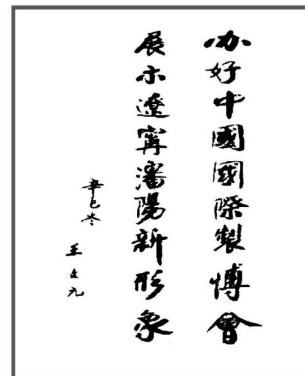 办好中國國際製博會
展示遼寧瀋陽新形象
辛巳冬
王文元